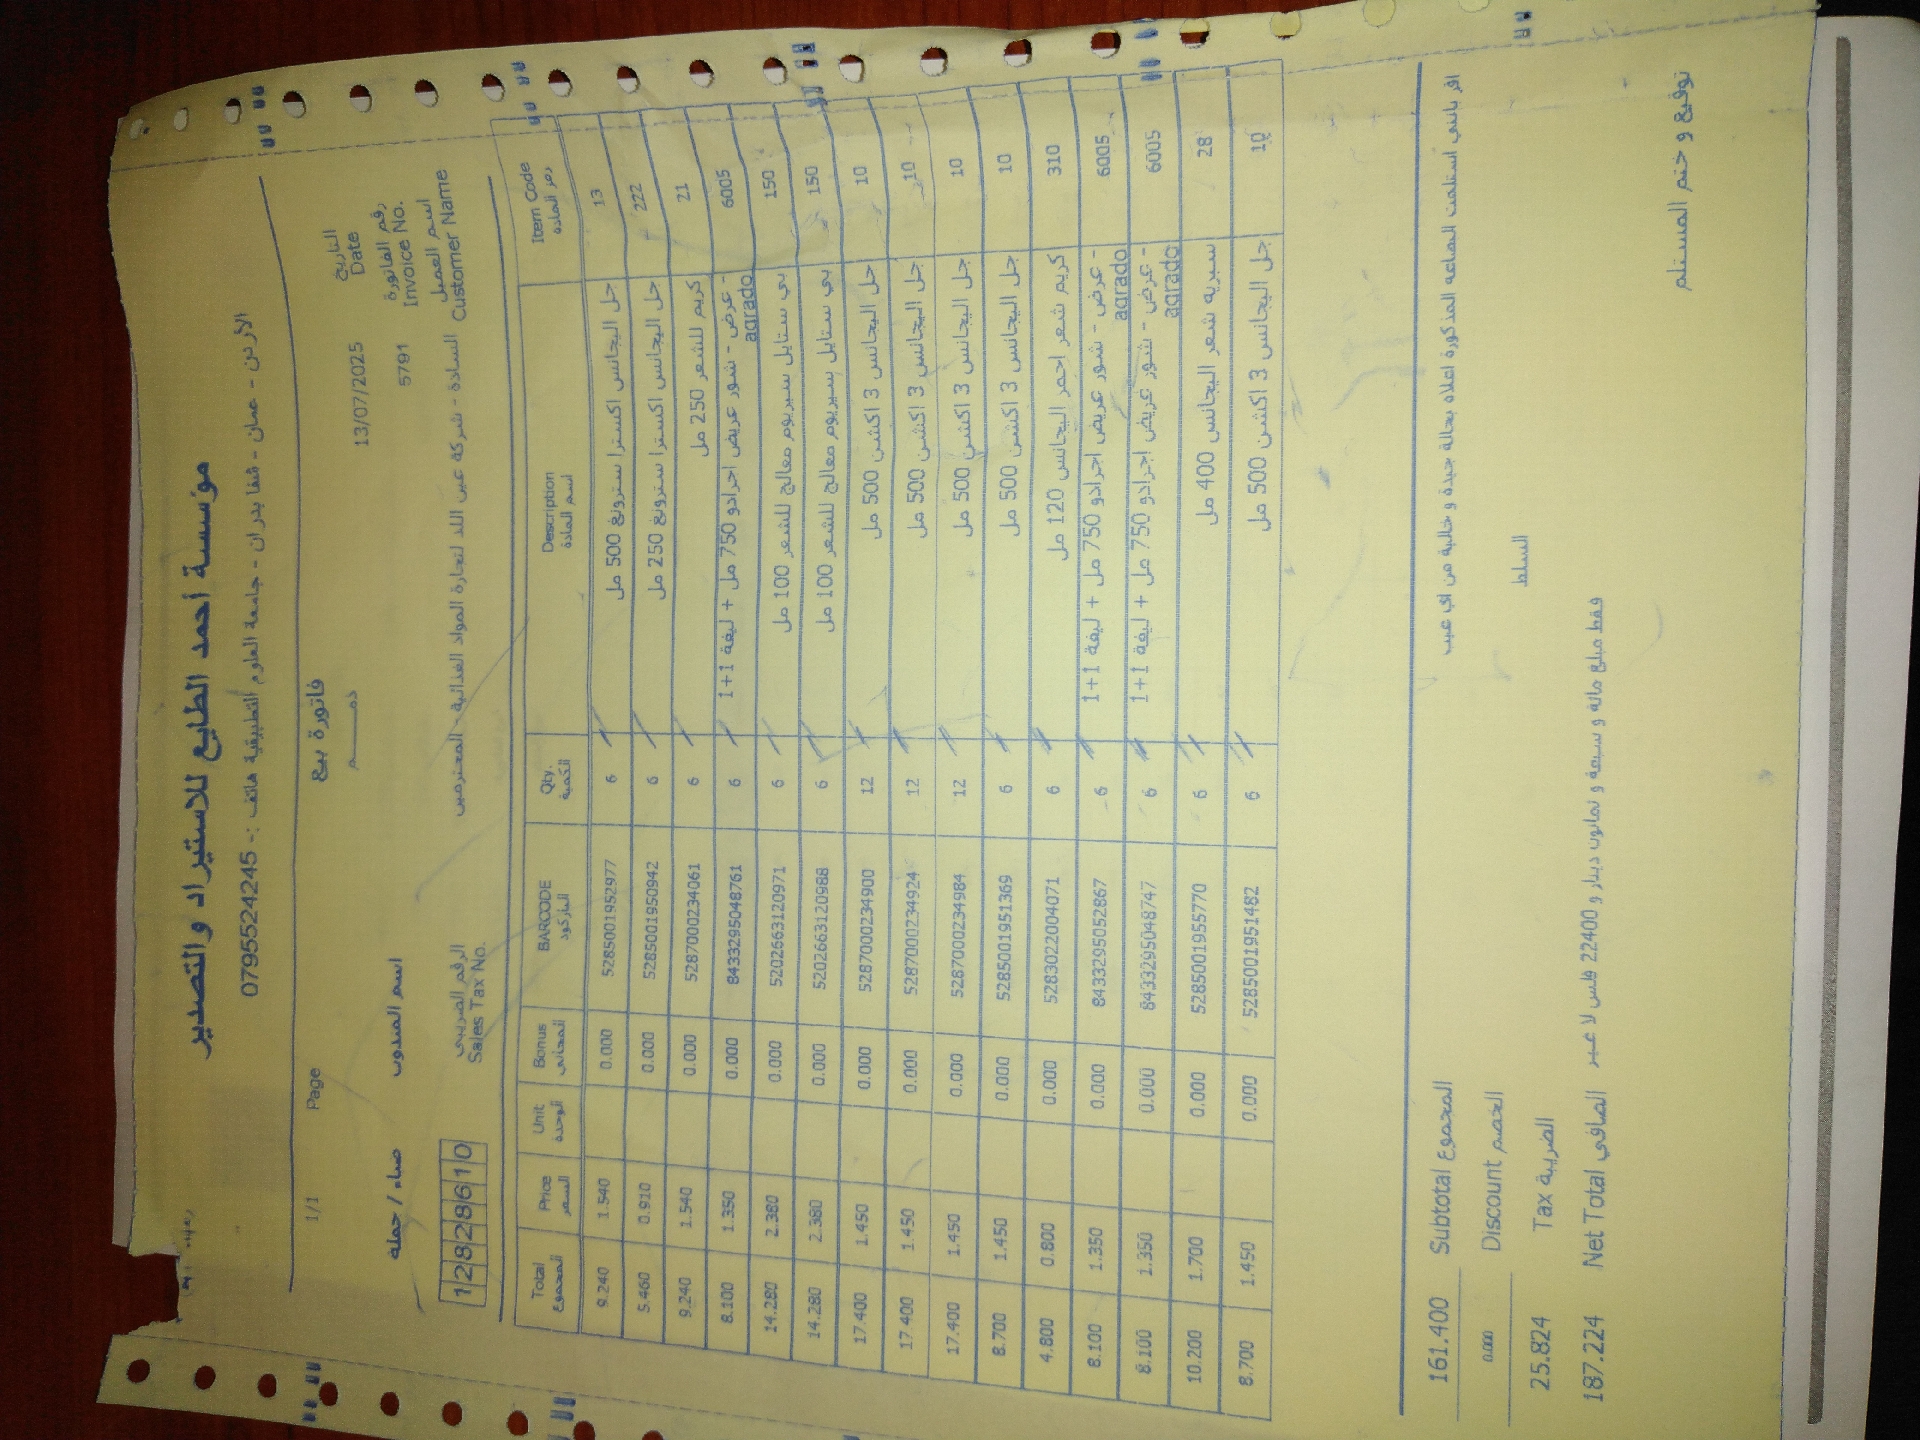 مؤسسة أحمد الطايع للاستيراد والتصدير
الأردن - عمان - شفا بدران - جامعة العلوم التطبيقية هاتف :- 0795524245
فاتورة بيع
1/1 Page
ذمـــــم
التاريخ
Date 13/07/2025
رقم الفاتورة
Invoice No. 5791
اسم المندوب ضياء / جملة
اسم العميل
Customer Name السادة - شركة عين اللد لتجارة المواد الغذائية - المحترمين
الرقم الضريبي
Sales Tax No. 12828610
Item Code Description Qty. BARCODE Bonus Unit Price Total
رمز المادة اسم المادة الكمية الباركود المجاني الوحدة السعر المجموع
13 جل اليجانس اكسترا سترونغ 500 مل 6 5285001952977 0.000 1.540 9.240
222 جل اليجانس اكسترا سترونغ 250 مل 6 5285001950942 0.000 0.910 5.460
21 كريم للشعر 250 مل 6 5287000234061 0.000 1.540 9.240
6005 عرض - شور عريض اجرادو 750 مل + ليفة 1+1 - agrado 6 8433295048761 0.000 1.350 8.100
150 بي ستايل سيريوم معالج للشعر 100 مل 6 5202663120971 0.000 2.380 14.280
150 بي ستايل سيريوم معالج للشعر 100 مل 6 5202663120988 0.000 2.380 14.280
10 جل اليجانس 3 اكشن 500 مل 12 5287000234900 0.000 1.450 17.400
10 جل اليجانس 3 اكشن 500 مل 12 5287000234924 0.000 1.450 17.400
10 جل اليجانس 3 اكشن 500 مل 12 5287000234984 0.000 1.450 17.400
10 جل اليجانس 3 اكشن 500 مل 6 5285001951369 0.000 1.450 8.700
310 كريم شعر احمر اليجانس 120 مل 6 5283022004071 0.000 0.800 4.800
6005 عرض - شور عريض اجرادو 750 مل + ليفة 1+1 - agrado 6 8433295052867 0.000 1.350 8.100
6005 عرض - شور عريض اجرادو 750 مل + ليفة 1+1 - agrado 6 8433295048747 0.000 1.350 8.100
28 سبريه شعر اليجانس 400 مل 6 5285001955770 0.000 1.700 10.200
10 جل اليجانس 3 اكشن 500 مل 6 5285001951482 0.000 1.450 8.700
اقر بانني استلمت البضاعه المذكورة اعلاه بحالة جيدة و خالية من اي عيب
161.400 Subtotal المجموع
0.000 Discount الخصم
السلط
25.824 Tax الضريبة
187.224 Net Total الصافي فقط مبلغ مائة و سبعة و ثمانون دينار و 22400 فلس لا غير
توقيع و ختم المستلم